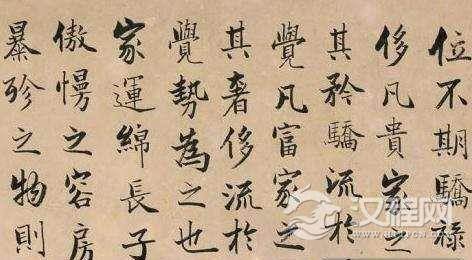 位不期驕祿
侈凡貴家之
其矜驕流於
覺凡富家之
其奢侈流於
覺勢為之也
家運綿長子
傲慢之容房
暴殄之物則
汉程网